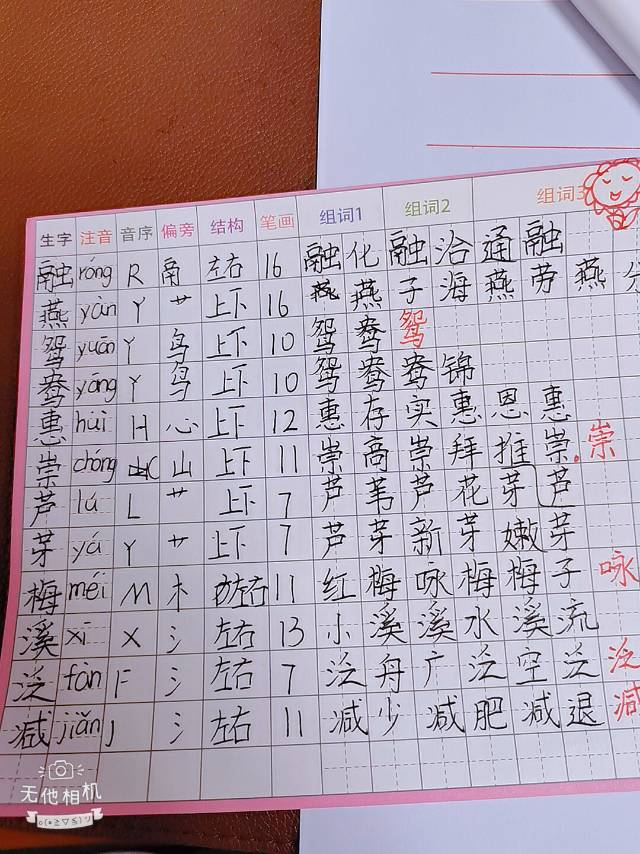 生字 注音 音序 偏旁 结构 笔画 组词1 组词2 组词3
融 róng R 鬲 左右 16 融化 融洽 通融
燕 yàn Y 艹 上下 16 燕燕子 海燕 劳燕分
鸳 yuān Y 鸟 上下 10 鸳鸯 鸳
鸯 yāng Y 鸟 上下 10 鸳鸯 鸯锦
惠 huì H 心 上下 12 惠存 实惠 恩惠
崇 chóng C 山 上下 11 崇高 崇拜 推崇 崇
芦 lú L 艹 上下 7 芦苇 芦花 芽芦
芽 yá Y 艹 上下 7 芦芽 新芽 嫩芽
梅 méi M 木 左右 11 红梅 咏梅 梅子 咏
溪 xī X 氵 左右 13 小溪 溪水 溪流
泛 fàn F 氵 左右 7 泛舟 广泛 空泛 泛
减 jiǎn J 氵 左右 11 减少 减肥 减退 减
无他相机